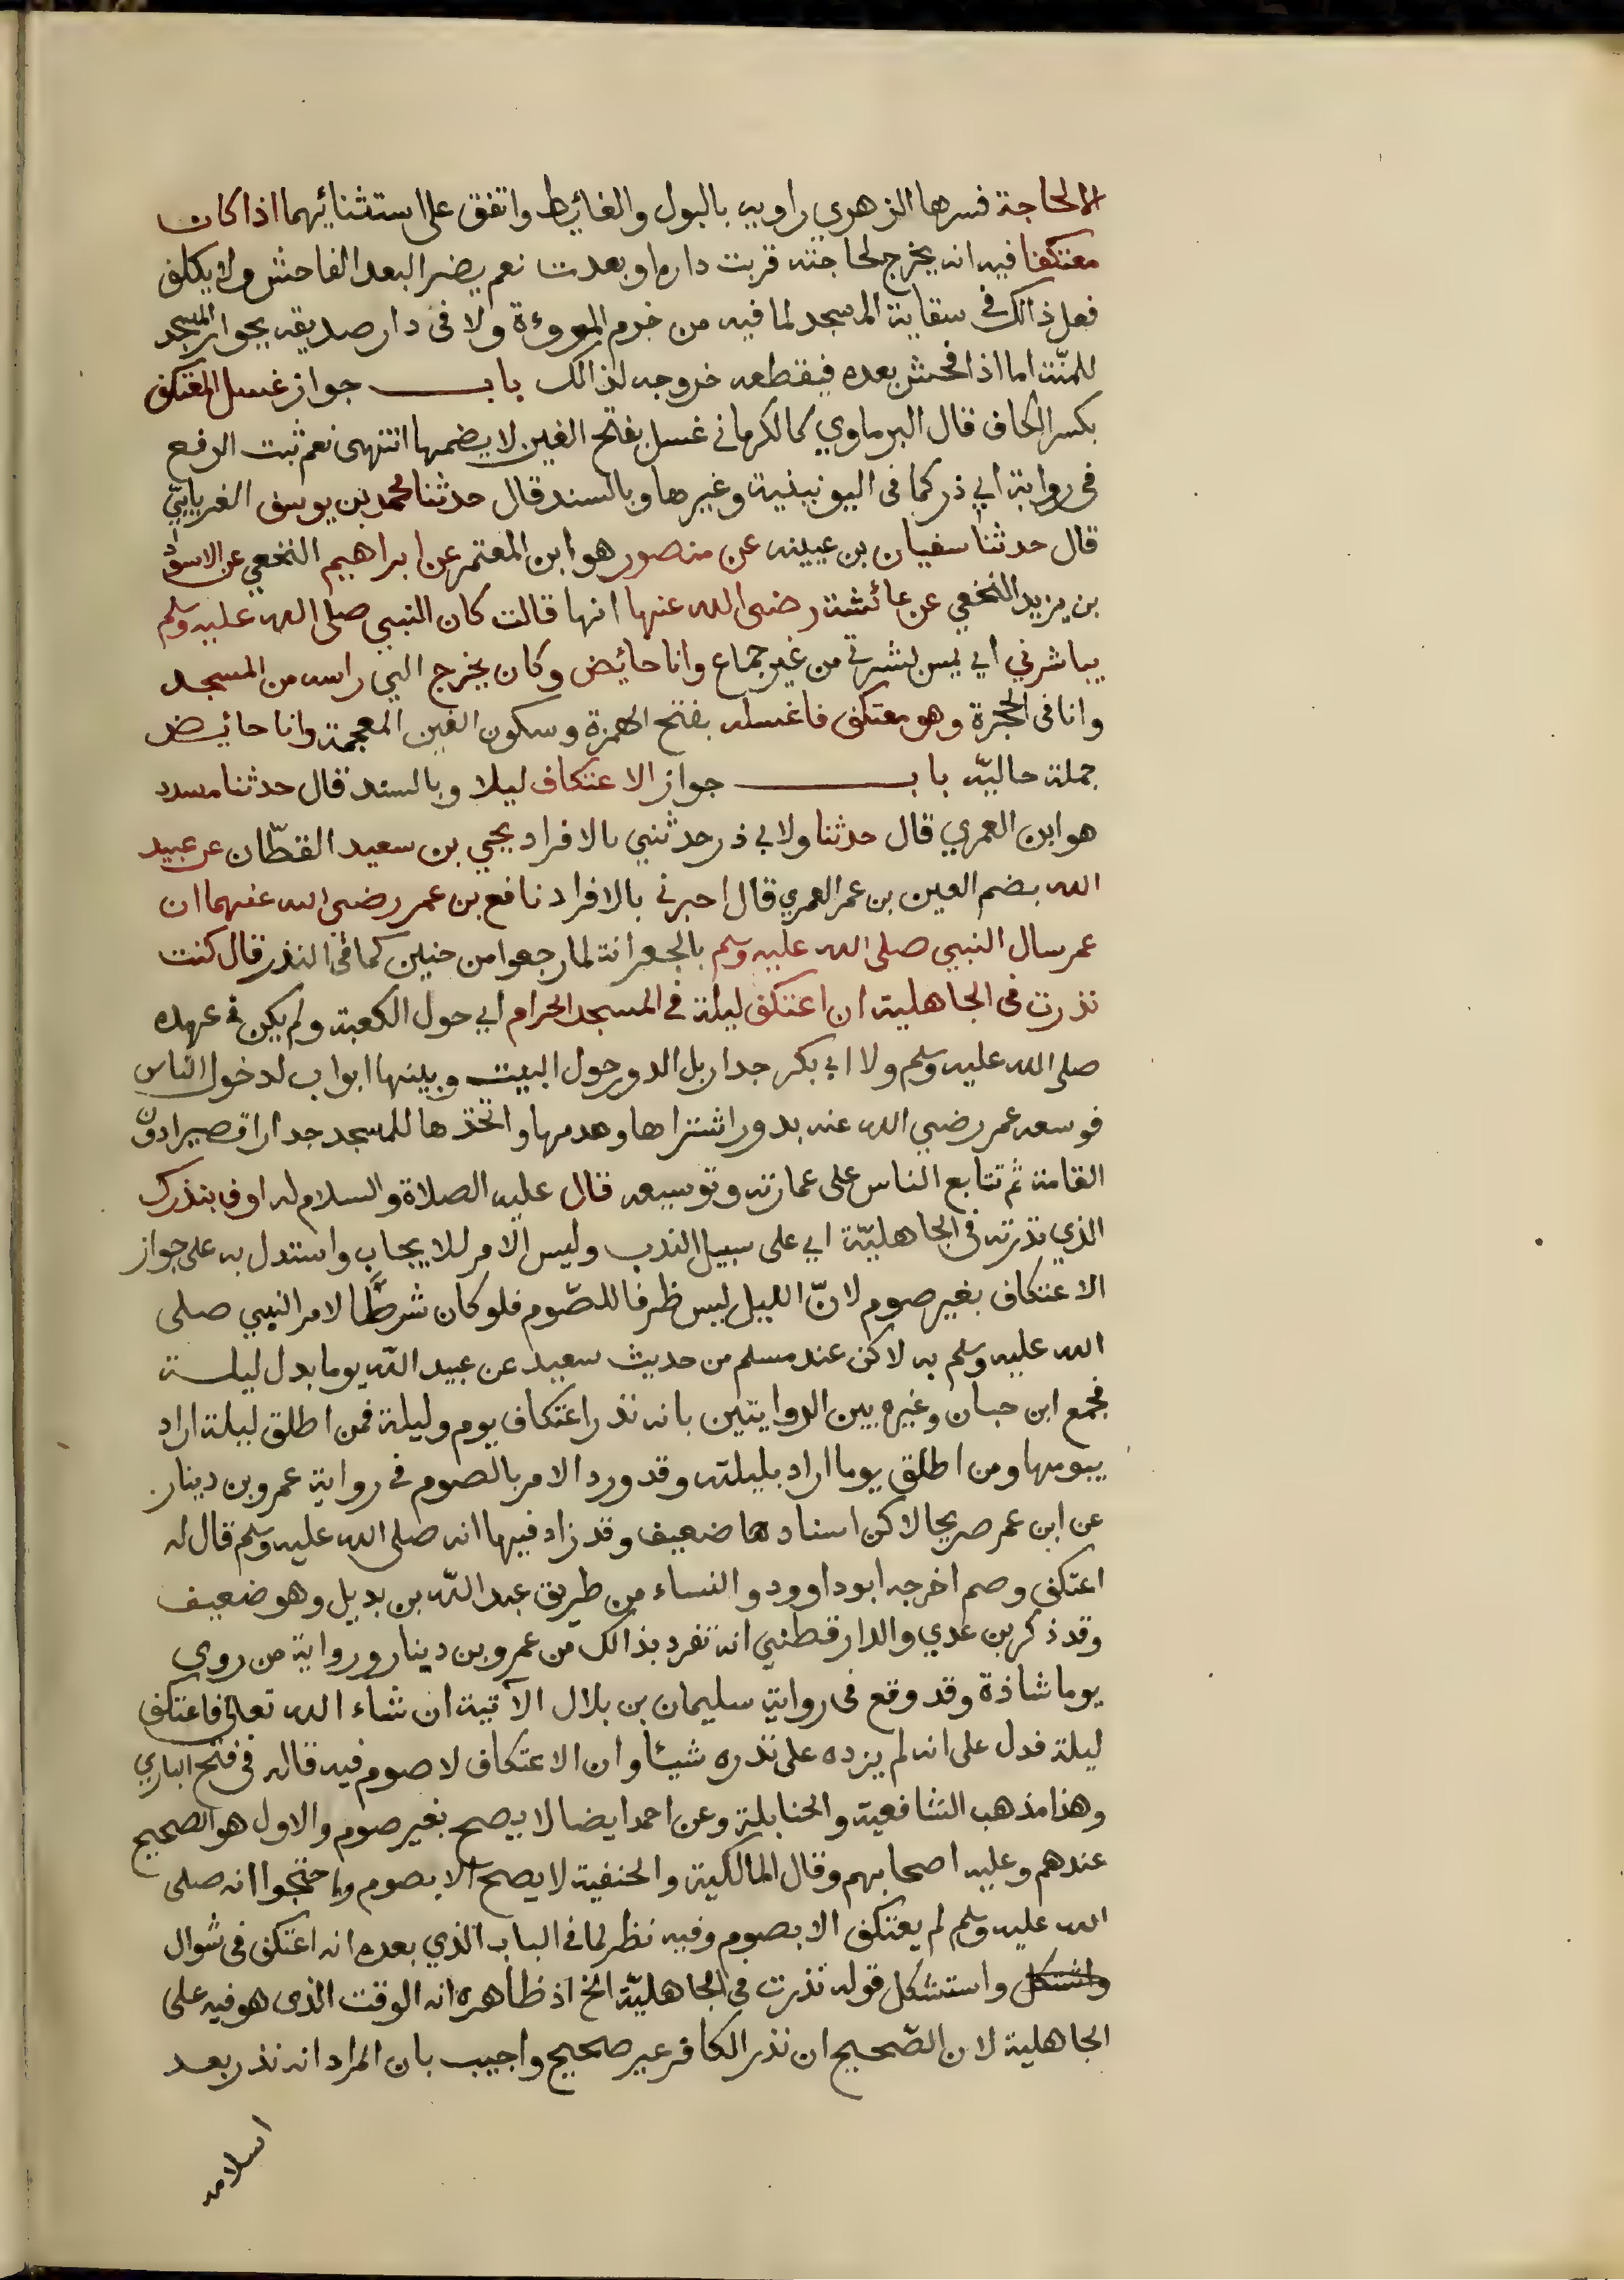 الا لحاجة فسرها الزهري راويه بالبول والغايط واتفق على استثنائهما اذا كان
معتكفا فيه انه يخرج لحاجته قربت داره او بعدت نعم يضر البعد الفاحش ولا يكلف
فعل ذالك في سقاية المسجد لما فيه من خرم المروءة ولا في دار صديقه بجوار المسجد
للمنّة اما اذا فحش بعده فيقطعه خروجه لذالك بـاب جواز غسل المعتكف
بكسر الكاف قال البرماوي كالكرماني غسل بفتح الغين لا يضمها انتهى نعم ثبت الرفع
في رواية ابي ذر كما في اليونينية وغيرها وبالسند قال حدثنا محمد بن يوسف الفريابيّ
قال حدثنا سفيان بن عيينه عن منصور هو ابن المعتمر عن ابراهيم النخعي عن الاسود
بن يزيد النخعي عن عائشة رضى الله عنها انها قالت كان النبي صلى الله عليه وسلم
يباشرني اي يمس بشرتي من غير جماع وانا حائض وكان يخرج الي راسه من المسجد
وانا في الحجرة وهو معتكف فاغسله بفتح الهمزة وسكون الغين المعجمة وانا حايض
جملة حاليّه بـاب جواز الاعتكاف ليلا وبالسند قال حدثنا مسدد
هو ابن العمري قال حدثنا ولابي ذر حدثني بالافراد يحيي بن سعيد القطّان عن عبيد
الله بضم العين بن عمر العمري قال احبرني بالافراد نافع بن عمر رضى الله عنهما ان
عمر سال النبي صلى الله عليه وسلم بالجعرانة لما رجعوا من حنين كما في النذر قال كنت
نذرت في الجاهلية ان اعتكف ليلة في المسجد الحرام اي حول الكعبة ولم يكن في عهده
صلى الله عليه وسلم ولا ابي بكر جدار بل الدور حول البيت وبينها ابواب لدخول الناس
فوسعه عمر رضي الله عنه بدور اشتراها وهدمها واتخذها للمسجد جدارا قصيرا دون
القامة ثم تتابع الناس على عمارته وتوسيعه قال عليه الصلاة والسلام له اوف بنذرك
الذي نذرته في الجاهليّة اي على سبيل الندب وليس الامر للايجاب واستدل به على جواز
الاعتكاف بغير صوم لانّ الليل ليس ظرفا للصّوم فلو كان شرطًا لامر النبي صلى
الله عليه وسلم به لاكن عند مسلم من حديث سعيد عن عبيد الله يوما بدل ليلة
فجمع ابن حبان وغيره بين الروايتين بانه نذر اعتكاف يوم وليلة فمن اطلق ليلة اراد
بيومها ومن اطلق يوما اراد بليلته وقد ورد الامر بالصوم في رواية عمرو بن دينار
عن ابن عمر صريحا لاكن اسنادها ضعيف وقد زاد فيها انه صلى الله عليه وسلم قال له
اعتكف وصم اخرجه ابو داوود والنساء من طريق عبد الله بن بديل وهو ضعيف
وقد ذكر بن عدي والدارقطني انه تفرد بذالك من عمرو بن دينار ورواية من روى
يوما شاذة وقد وقع في رواية سليمان بن بلال الآتية ان شاء الله تعالى فاعتكف
ليلة فدل على انه لم يزده على نذره شيئا وان الاعتكاف لا صوم فيه قاله في فتح الباري
وهذا مذهب الشافعية والحنابلة وعن احمد ايضا لا يصح بغير صوم والاول هو الصحيح
عندهم وعليه اصحابهم وقال المالكية والحنفية لا يصح الا بصوم واحتجوا انه صلى
الله عليه وسلم لم يعتكف الا بصوم وفيه نظر لما في الباب الذي بعده انه اعتكف في شوال
واستشكل قوله نذرت في الجاهليّة الخ اذ ظاهره انه الوقت الذى هو فيه على
الجاهلية لان الصّحيح ان نذر الكافر غير صحيح واجيب بان المراد انه نذر بعد
اسلامه